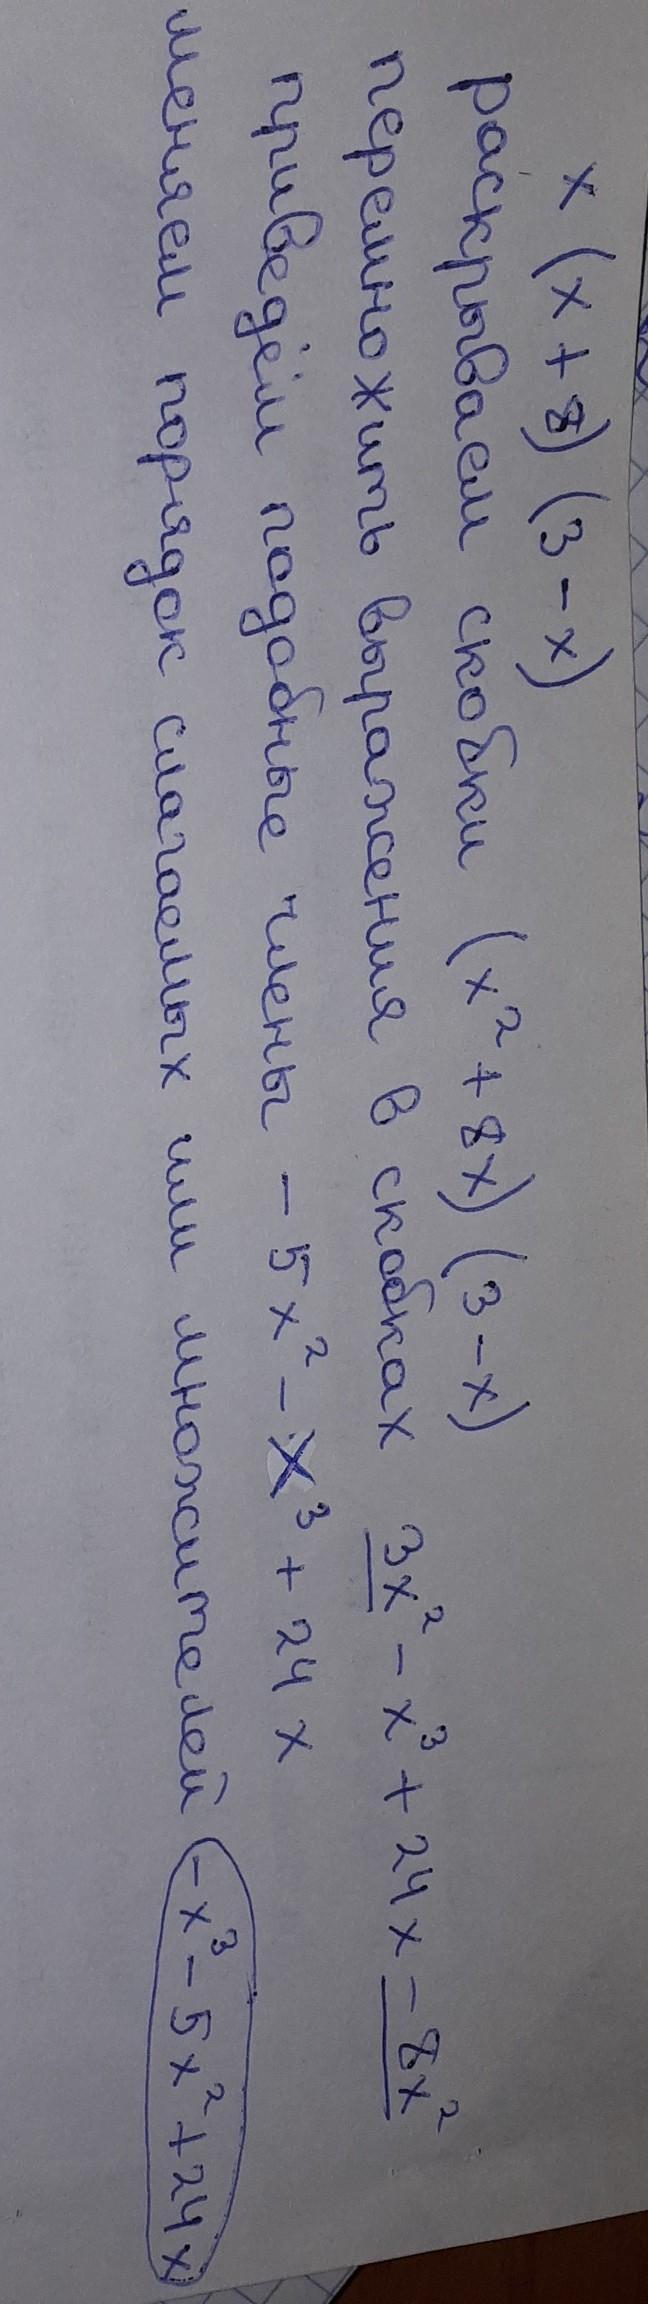 x (x + 8) (3 - x)
раскрываем скобки (x² + 8x) (3 - x)
перемножить выражения в скобках 3x² - x³ + 24x - 8x²
приведём подобные члены - 5x² - x³ + 24x
меняем порядок слагаемых или множителей - x³ - 5x² + 24x